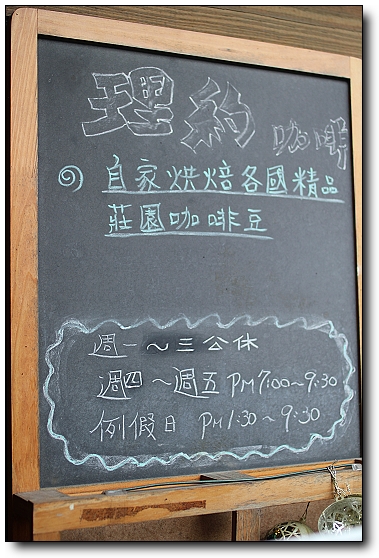 理約 咖啡
自家烘焙各國精品
莊園咖啡豆
週一～三公休
週四～週五 PM 7:00～9:30
例假日 PM 1:30～9:30